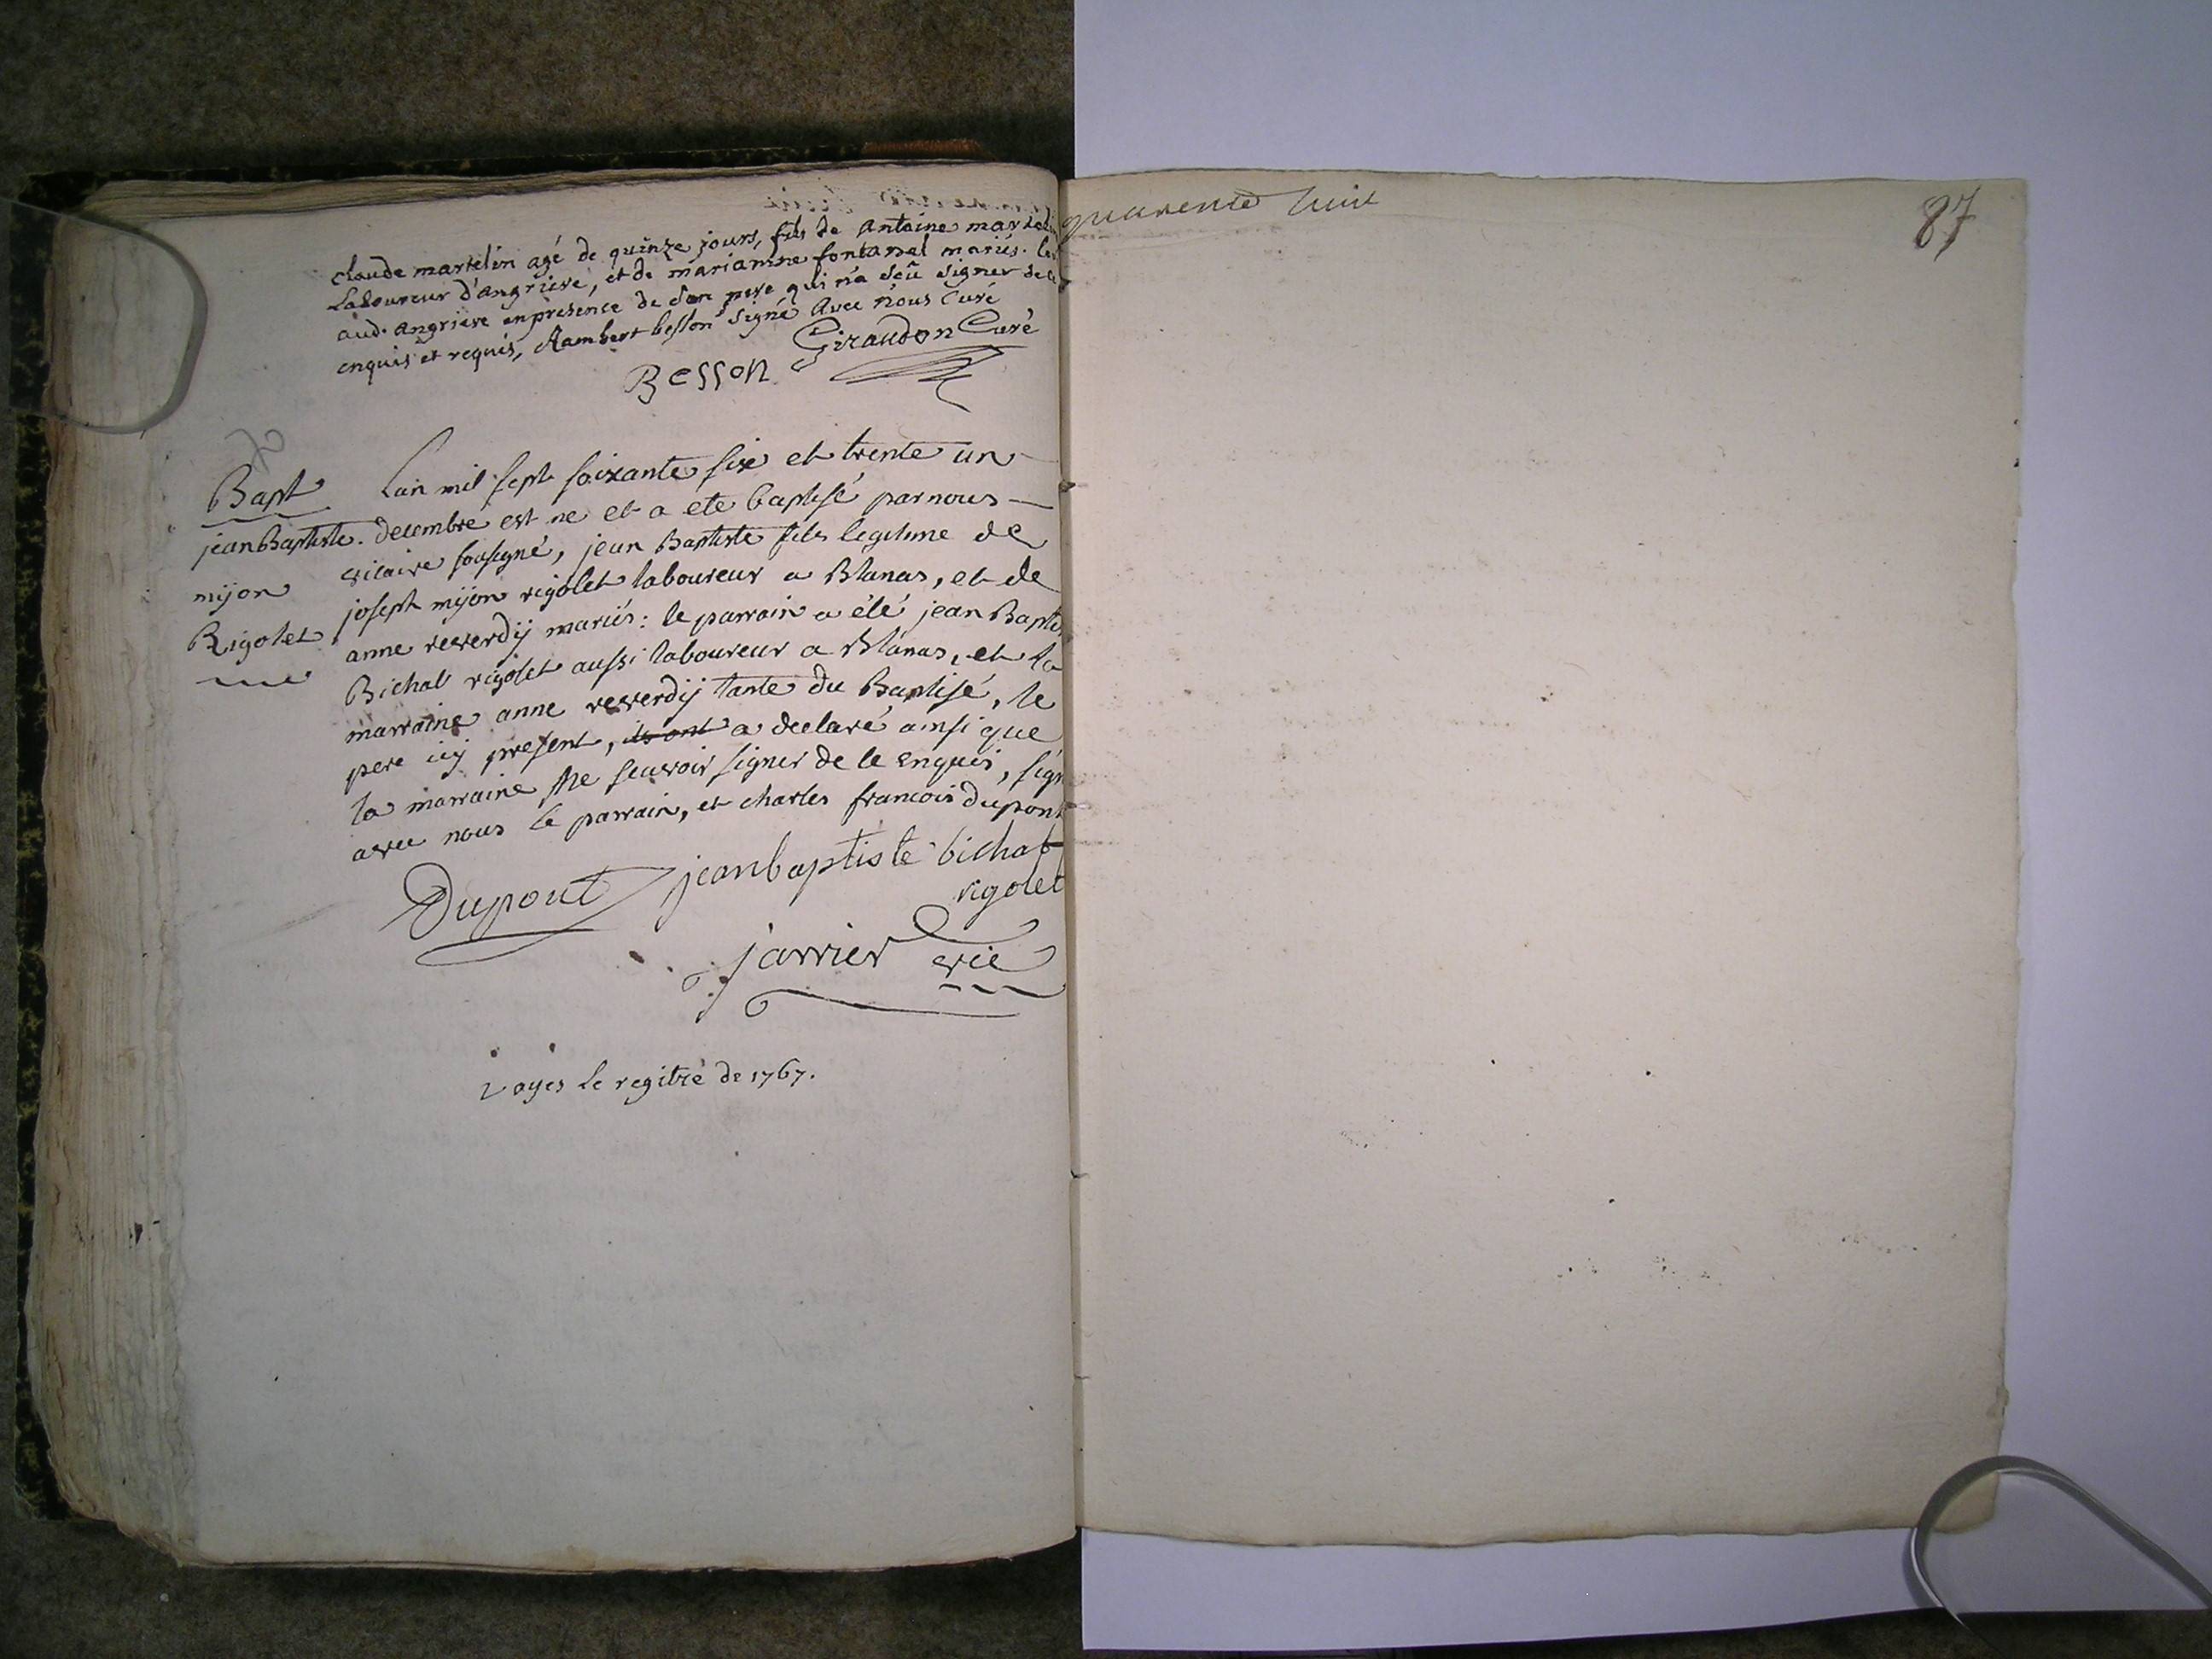 claude martelin agé de quinze jours, fils de antoine martel
Laboureur d'angrieve, et de marianne fontanel mariés. les
aud. angrieve en presence de son pere qui n'a sçû signer de le
enquis et requis, et ambert besson signé avec nous curé
Besson Giraudon Curé
Bapt
jean Baptiste
mijon
Rigolet
Lan mil sept soixante sixe et trente un
decembre est ne et a ete baptisé par nous
vicaire sousigné, jean Baptiste fils legitime de
joseph mijon rigolet laboureur a Blanas, et de
anne reverdij mariés: le parrain a été jean Baptis
Bichat rigolet aussi laboureur a Blanas, et la
marraine anne reverdij tante du Baptisé, le
pere icy present, ils ont a declaré ainsi que
la marraine Ne scavoir signer de le enquis, sign
avec nous le parrain, et charles francois dupont
Dupont jeanbaptiste bichat
rigolet
jarrier vic
voyes le regitre de 1767.
quarente huit
87